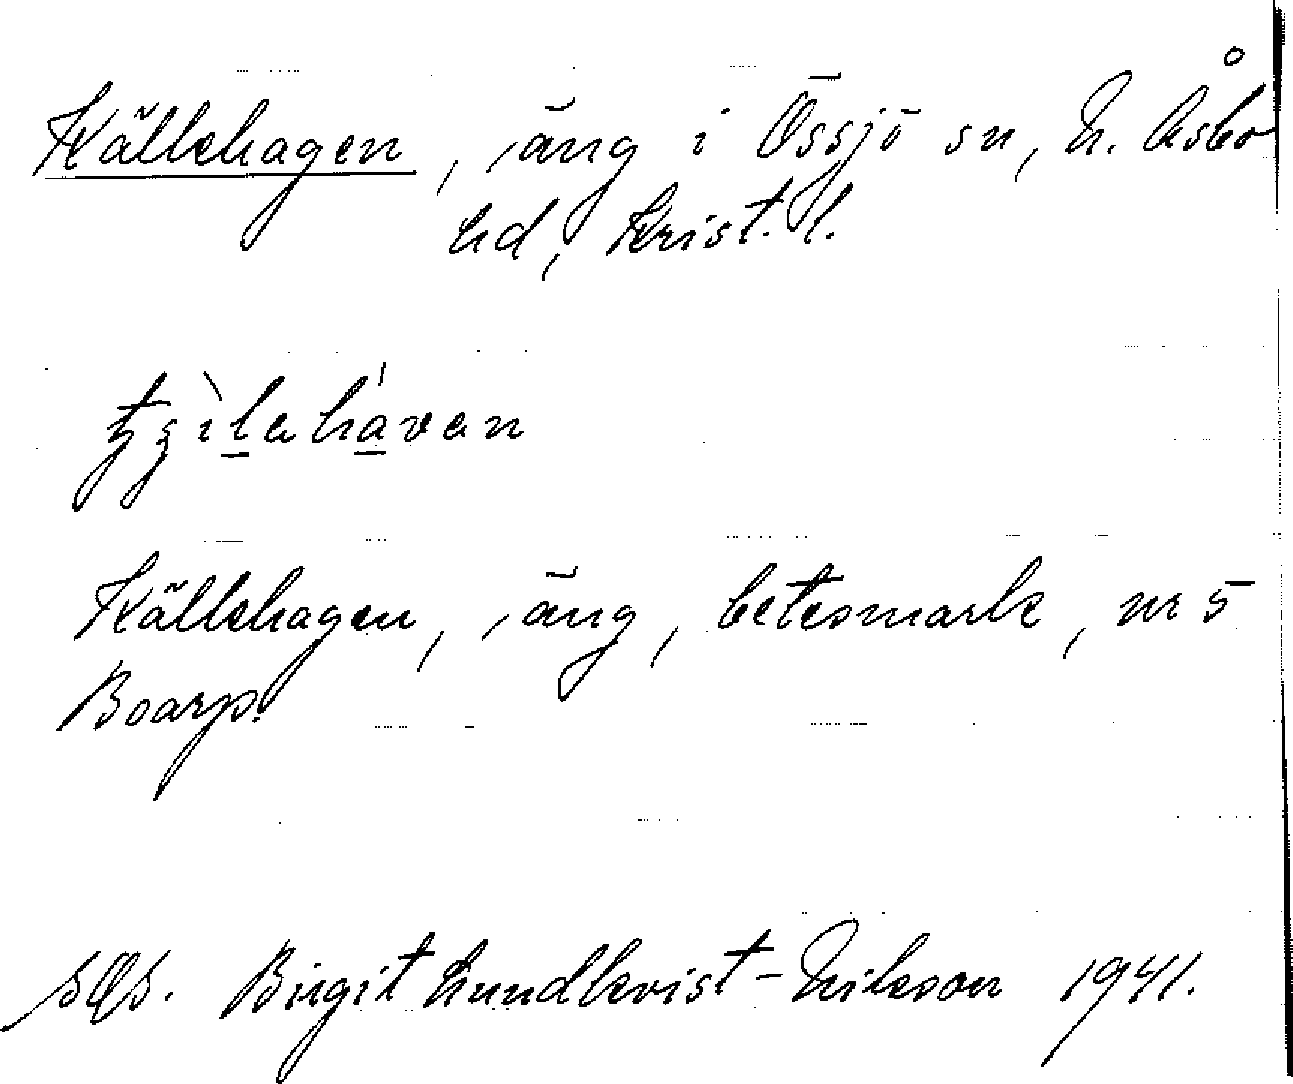 Källehagen, äng i Össjö sn, N. Åsbo
hd, Krist. l.
Källehagen, äng, betesmark, nr 5
Boarp.
Birgit Lundkvist-Nilsson 1941.